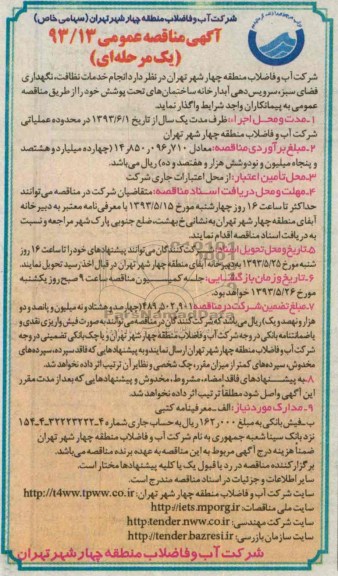 شرکت آب و فاضلاب منطقه چهار شهر تهران (سهامی خاص)
آگهی مناقصه عمومی ۹۳/۱۳
(یک مرحله‌ای)
شرکت آب و فاضلاب منطقه چهار شهر تهران در نظر دارد انجام خدمات نظافت، نگهداری
فضای سبز، سرویس‌دهی آبدارخانه ساختمان‌های تحت پوشش خود را از طریق مناقصه
عمومی به پیمانکاران واجد شرایط واگذار نماید.
۱ـ مدت و محل اجرا: ظرف مدت یک سال از تاریخ ۱۳۹۳/۶/۱ در محدوده عملیاتی
شرکت آب و فاضلاب منطقه چهار شهر تهران
۲ـ مبلغ برآوردی مناقصه: معادل ۱۴،۸۵۰،۰۹۶،۷۱۰ (چهارده میلیارد و هشتصد
و پنجاه میلیون و نود و شش هزار و هفتصد و ده) ریال می‌باشد.
۳ـ محل تأمین اعتبار: از محل اعتبارات جاری شرکت
۴ـ مهلت و محل دریافت اسناد مناقصه: متقاضیان شرکت در مناقصه می‌توانند
حداکثر تا ساعت ۱۶ روز چهارشنبه مورخ ۱۳۹۳/۵/۱۵ با معرفی‌نامه معتبر به دبیرخانه
آبفای منطقه چهار شهر تهران به نشانی خ بهشت، ضلع جنوبی پارک شهر مراجعه و نسبت
به دریافت اسناد مناقصه اقدام نمایند.
۵ـ تاریخ و محل تحویل اسناد: شرکت‌کنندگان می‌توانند پیشنهادهای خود را تا ساعت ۱۶ روز
شنبه مورخ ۱۳۹۳/۵/۲۵ به دبیرخانه آبفای منطقه چهار شهر تهران در قبال اخذ رسید تحویل نمایند.
۶ـ تاریخ و زمان بازگشایی: جلسه کمیسیون مناقصه ساعت ۹ صبح روز یکشنبه
مورخ ۱۳۹۳/۵/۲۶ خواهد بود.
۷ـ مبلغ تضمین شرکت در مناقصه: ۴۸۹،۵۰۲،۹۰۱ (چهارصد و هشتاد و نه میلیون و پانصد و دو
هزار و نهصد و یک) ریال می‌باشد که شرکت‌کنندگان در مناقصه می‌توانند به صورت فیش واریزی نقدی و
یا ضمانتنامه بانکی در وجه شرکت آب و فاضلاب منطقه چهار شهر تهران و یا چک بانکی تضمینی در وجه
شرکت آب و فاضلاب منطقه چهار شهر تهران ارسال نمایند و به پیشنهادهایی که فاقد سپرده، سپرده‌های
مخدوش، سپرده‌های کمتر از میزان مقرر، چک شخصی و نظایر آن ترتیب اثر داده نخواهد شد.
۸ـ به پیشنهادهای فاقد امضاء، مشروط، مخدوش و پیشنهادهایی که بعد از مدت مقرر
این آگهی واصل شود مطلقاً ترتیب اثر داده نخواهد شد.
۹ـ مدارک مورد نیاز: الف ـ معرفینامه کتبی
ب ـ فیش بانکی به مبلغ ۱۶۲،۰۰۰ ریال به حساب جاری شماره ۴ـ۳۲۲۲۳۲۲۲ـ۴ـ۱۵۴
نزد بانک سینا شعبه جمهوری به نام شرکت آب و فاضلاب منطقه چهار شهر تهران
ضمناً هزینه درج آگهی مربوط به این مناقصه به عهده برنده مناقصه می‌باشد.
برگزارکننده مناقصه در رد یا قبول یک یا کلیه پیشنهادها مختار است.
سایر اطلاعات و جزئیات در اسناد مناقصه مندرج است.
سایت شرکت آب و فاضلاب منطقه چهار شهر تهران: http://t4ww.tpww.co.ir
سایت ملی مناقصات: http://iets.mporg.ir
سایت شرکت مهندسی: http:tender.nww.co.ir
سایت سازمان بازرسی: http://tender.bazresi.ir
شرکت آب و فاضلاب منطقه چهار شهر تهران